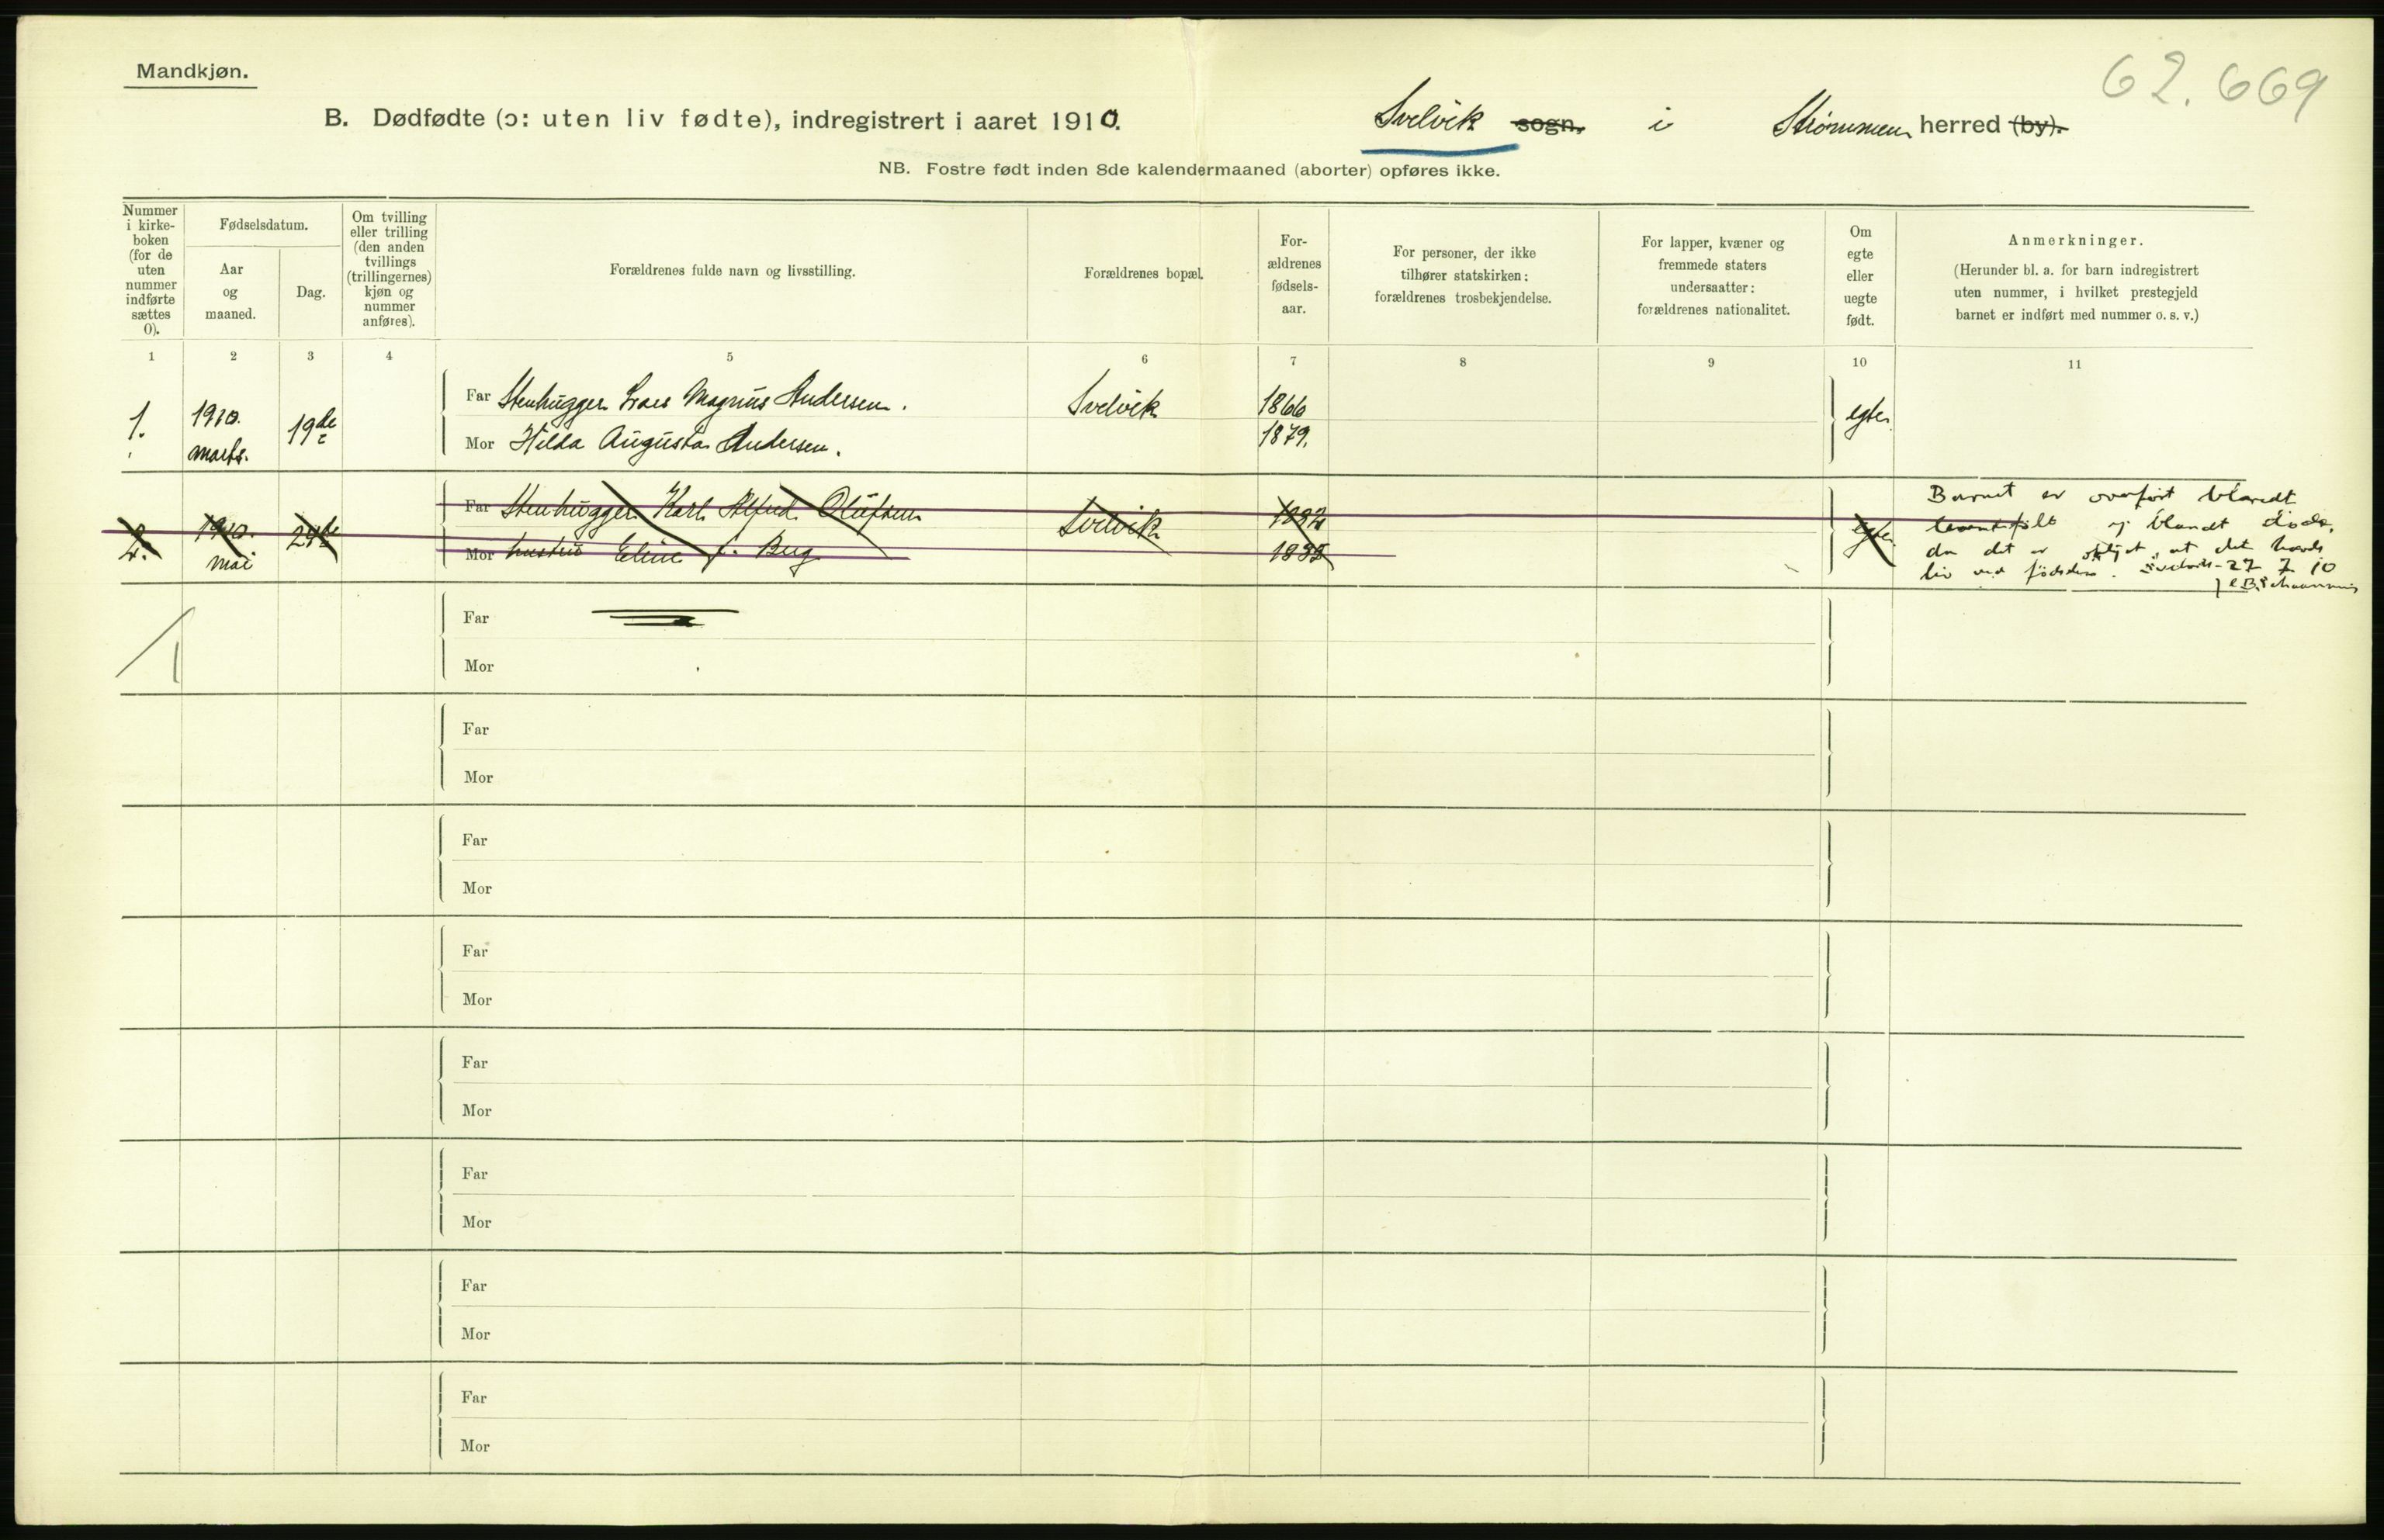 62.669
Mandkjøn.
B. Dødfødte (ɔ: uten liv fødte), indregistrert i aaret 1910. Svelvik sogn. i Strømmen herred (by).
NB. Fostre født inden 8de kalendermaaned (aborter) opføres ikke.
Nummer
i kirke-
boken
(for de
uten
nummer
indførte
sættes
0).
Fødselsdatum.
Aar
og
maaned.
Dag.
Om tvilling
eller trilling
(den anden
tvillings
(trillingernes)
kjøn og
nummer
anføres).
Forældrenes fulde navn og livsstilling.
Forældrenes bopæl.
For-
ældrenes
fødsels-
aar.
For personer, der ikke
tilhører statskirken:
forældrenes trosbekjendelse.
For lapper, kvæner og
fremmede staters
undersaatter:
forældrenes nationalitet.
Om
egte
eller
uegte
født.
Anmerkninger.
(Herunder bl. a. for barn indregistrert
uten nummer, i hvilket prestegjeld
barnet er indført med nummer o. s. v.)
1 2 3 4 5 6 7 8 9 10 11
1. 1910. marts. 19de egte
Far Stenhugger Lars Magnus Andersen. Svelvik 1866
Mor Hilda Augusta Andersen. 1879.
2. 1910. mai 24de egte
Far Stenhugger Karl Alfred Olufsen Svelvik
Mor hustru Eline f. Berg
Barnet er overført blandt
levendefødte og blandt døde,
da det er oplyst, at det havde
liv ved fødselen. Svelvik 27 7 10
Far
Mor
1
Far
Mor
Far
Mor
Far
Mor
Far
Mor
Far
Mor
Far
Mor
Far
Mor